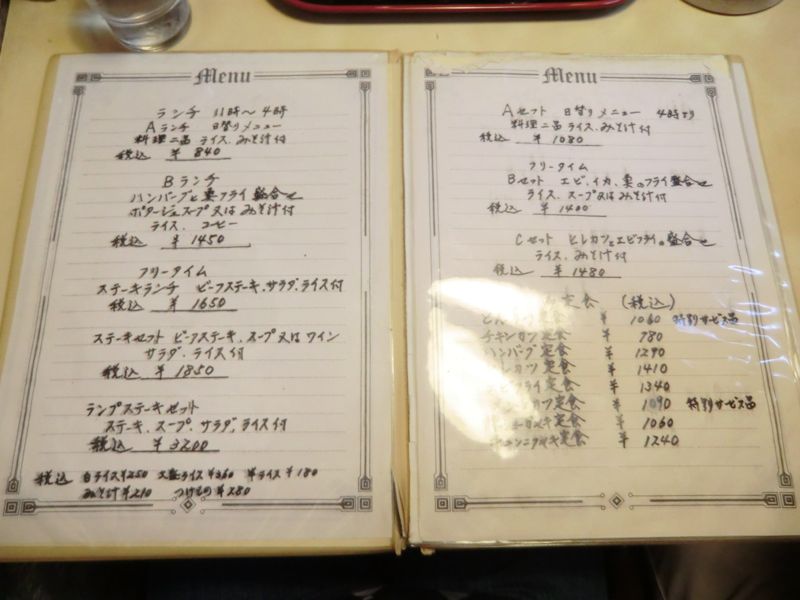 Menu
ランチ 11時〜4時
Aランチ 日替りメニュー
料理二品 ライス、みそ汁付
税込 ¥840
Bランチ
ハンバーグと フライ盛合せ
ポタージュスープ又はみそ汁付
ライス、コーヒー
税込 ¥1450
フリータイム
ステーキランチ ビーフステーキ、サラダ、ライス付
税込 ¥1650
ステーキセット ビーフステーキ、スープ又はワイン
サラダ、ライス付
税込 ¥1850
ランプステーキセット
ステーキ、スープ、サラダ、ライス付
税込 ¥3200
税込 白ライス¥250 大盛ライス¥360 半ライス¥180
みそ汁¥210 つけもの¥280
Menu
Aセット 日替りメニュー 4時より
料理二品 ライス、みそ汁付
税込 ¥1080
フリータイム
Bセット エビ、イカ、 のフライ盛合せ
ライス、スープ又はみそ汁付
税込 ¥1400
Cセット ヒレカツとエビフライの盛合せ
ライス、みそ汁付
税込 ¥1480
定食 (税込)
定食 ¥1060 特別サービス品
チキンカツ定食 ¥780
ハンバーグ定食 ¥1290
ヒレカツ定食 ¥1410
フライ定食 ¥1340
カツ定食 ¥1090 特別サービス品
定食 ¥1060
定食 ¥1240